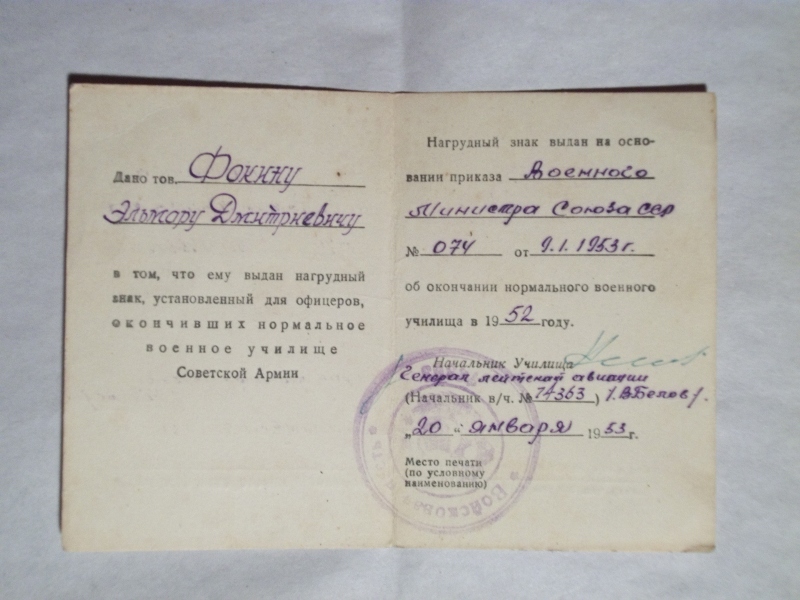 Дано тов. Фокину
Эльмару Дмитриевичу
в том, что ему выдан нагрудный
знак, установленный для офицеров,
окончивших нормальное
военное училище
Советской Армии
Нагрудный знак выдан на осно-
вании приказа Военного
Министра Союза ССР
№ 074 от 9.1.1953г.
об окончании нормального военного
училища в 1952 году.
Начальник Училища
Генерал лейтенант авиации
(Начальник в/ч. № 74363) /.В.Белов/.
„20" января 1953г.
Место печати
(по условному
наименованию)
Войсковая часть